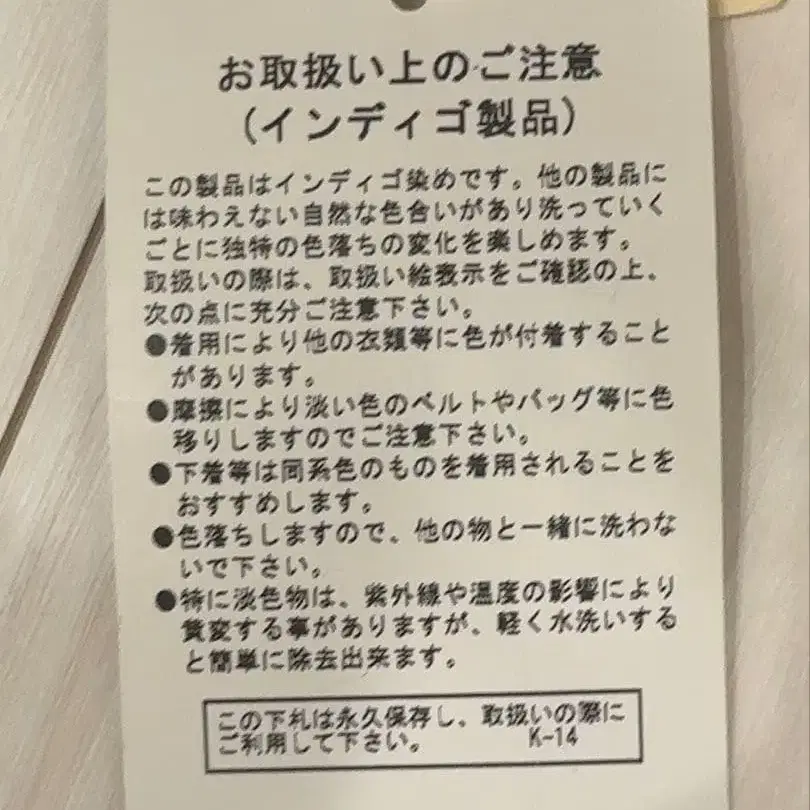 お取扱い上のご注意
(インディゴ製品)
この製品はインディゴ染めです。他の製品に
は味わえない自然な色合いがあり洗っていく
ごとに独特の色落ちの変化を楽しめます。
取扱いの際は、取扱い絵表示をご確認の上、
次の点に充分ご注意下さい。
●着用により他の衣類等に色が付着すること
があります。
●摩擦により淡い色のベルトやバッグ等に色
移りしますのでご注意下さい。
●下着等は同系色のものを着用されることを
おすすめします。
●色落ちしますので、他の物と一緒に洗わな
いで下さい。
●特に淡色物は、紫外線や温度の影響により
黄変する事がありますが、軽く水洗いする
と簡単に除去出来ます。
この下札は永久保存し、取扱いの際に
ご利用して下さい。 K-14